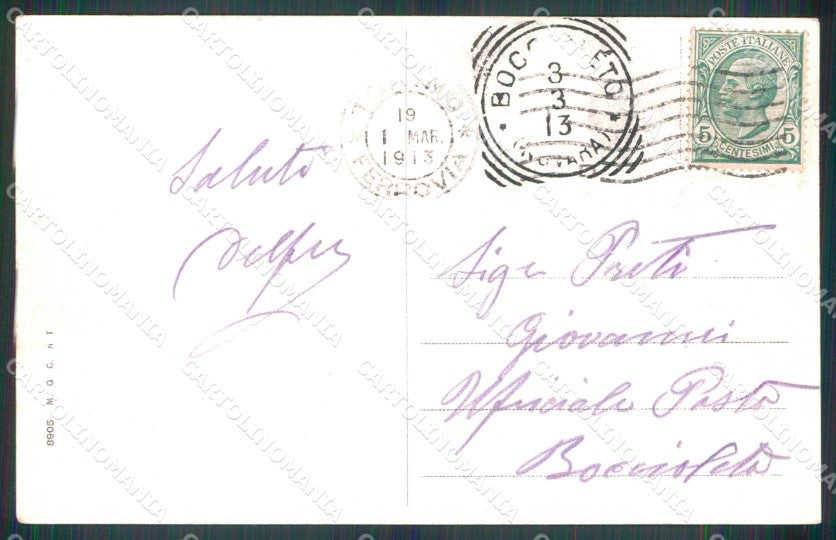 Saluti
Sigr Preti
Giovanni
Ufficiale Posta
Boccioleto
19
1 MAR.
1913
FERROVIA
BOCCIOLETO
3
3
13
(NOVARA)
POSTE ITALIANE
5 5
CENTESIMI
8905 M. G. C. N 1
CARTOLINOMANIA